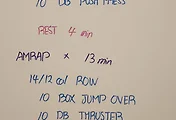 10 DB PUSH PRESS
REST 4 min
AMRAP x 13 min
14/12 cal ROW
10 BOX JUMP OVER
10 DB THRUSTER